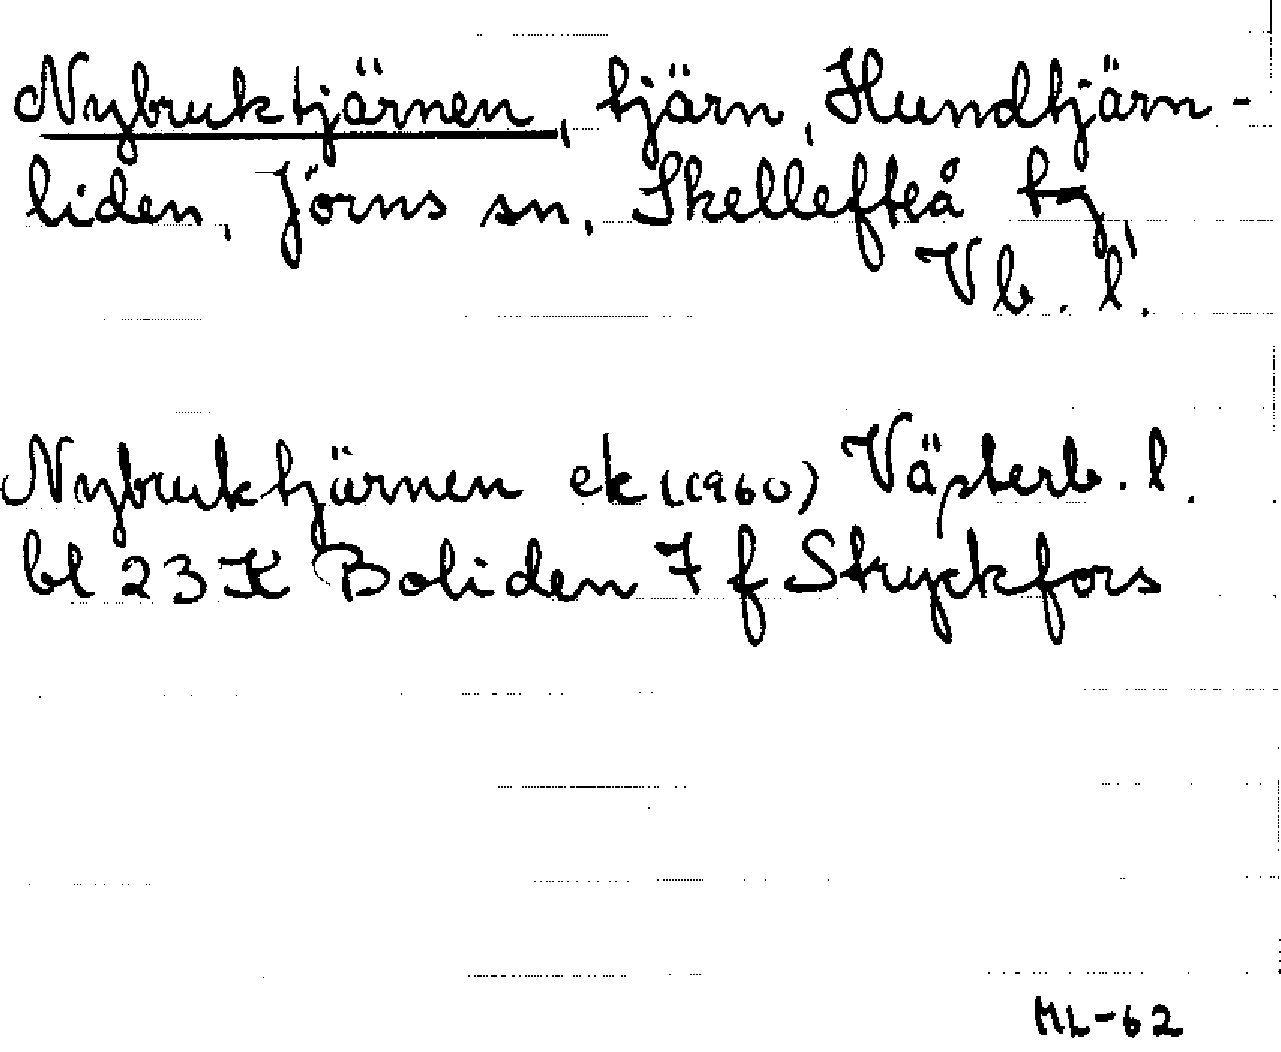 Nybruktjärnen, tjärn, Hundtjärn-
liden, Jörns sn, Skellefteå tg,
Vb. l.
Nybruktjärnen ek (1960) Västerb. l.
bl 23 K Boliden 7 f Stryckfors
ML-62